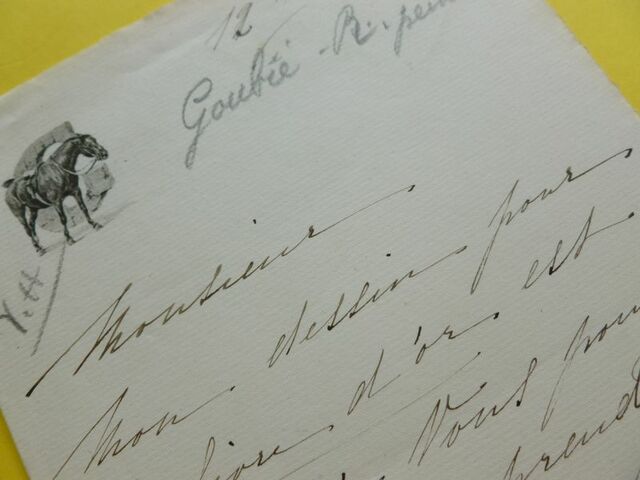 12
Goubie. R. pein
V. H
Monsieur
Mon dessin pour
d'or est
Vous pou
prend